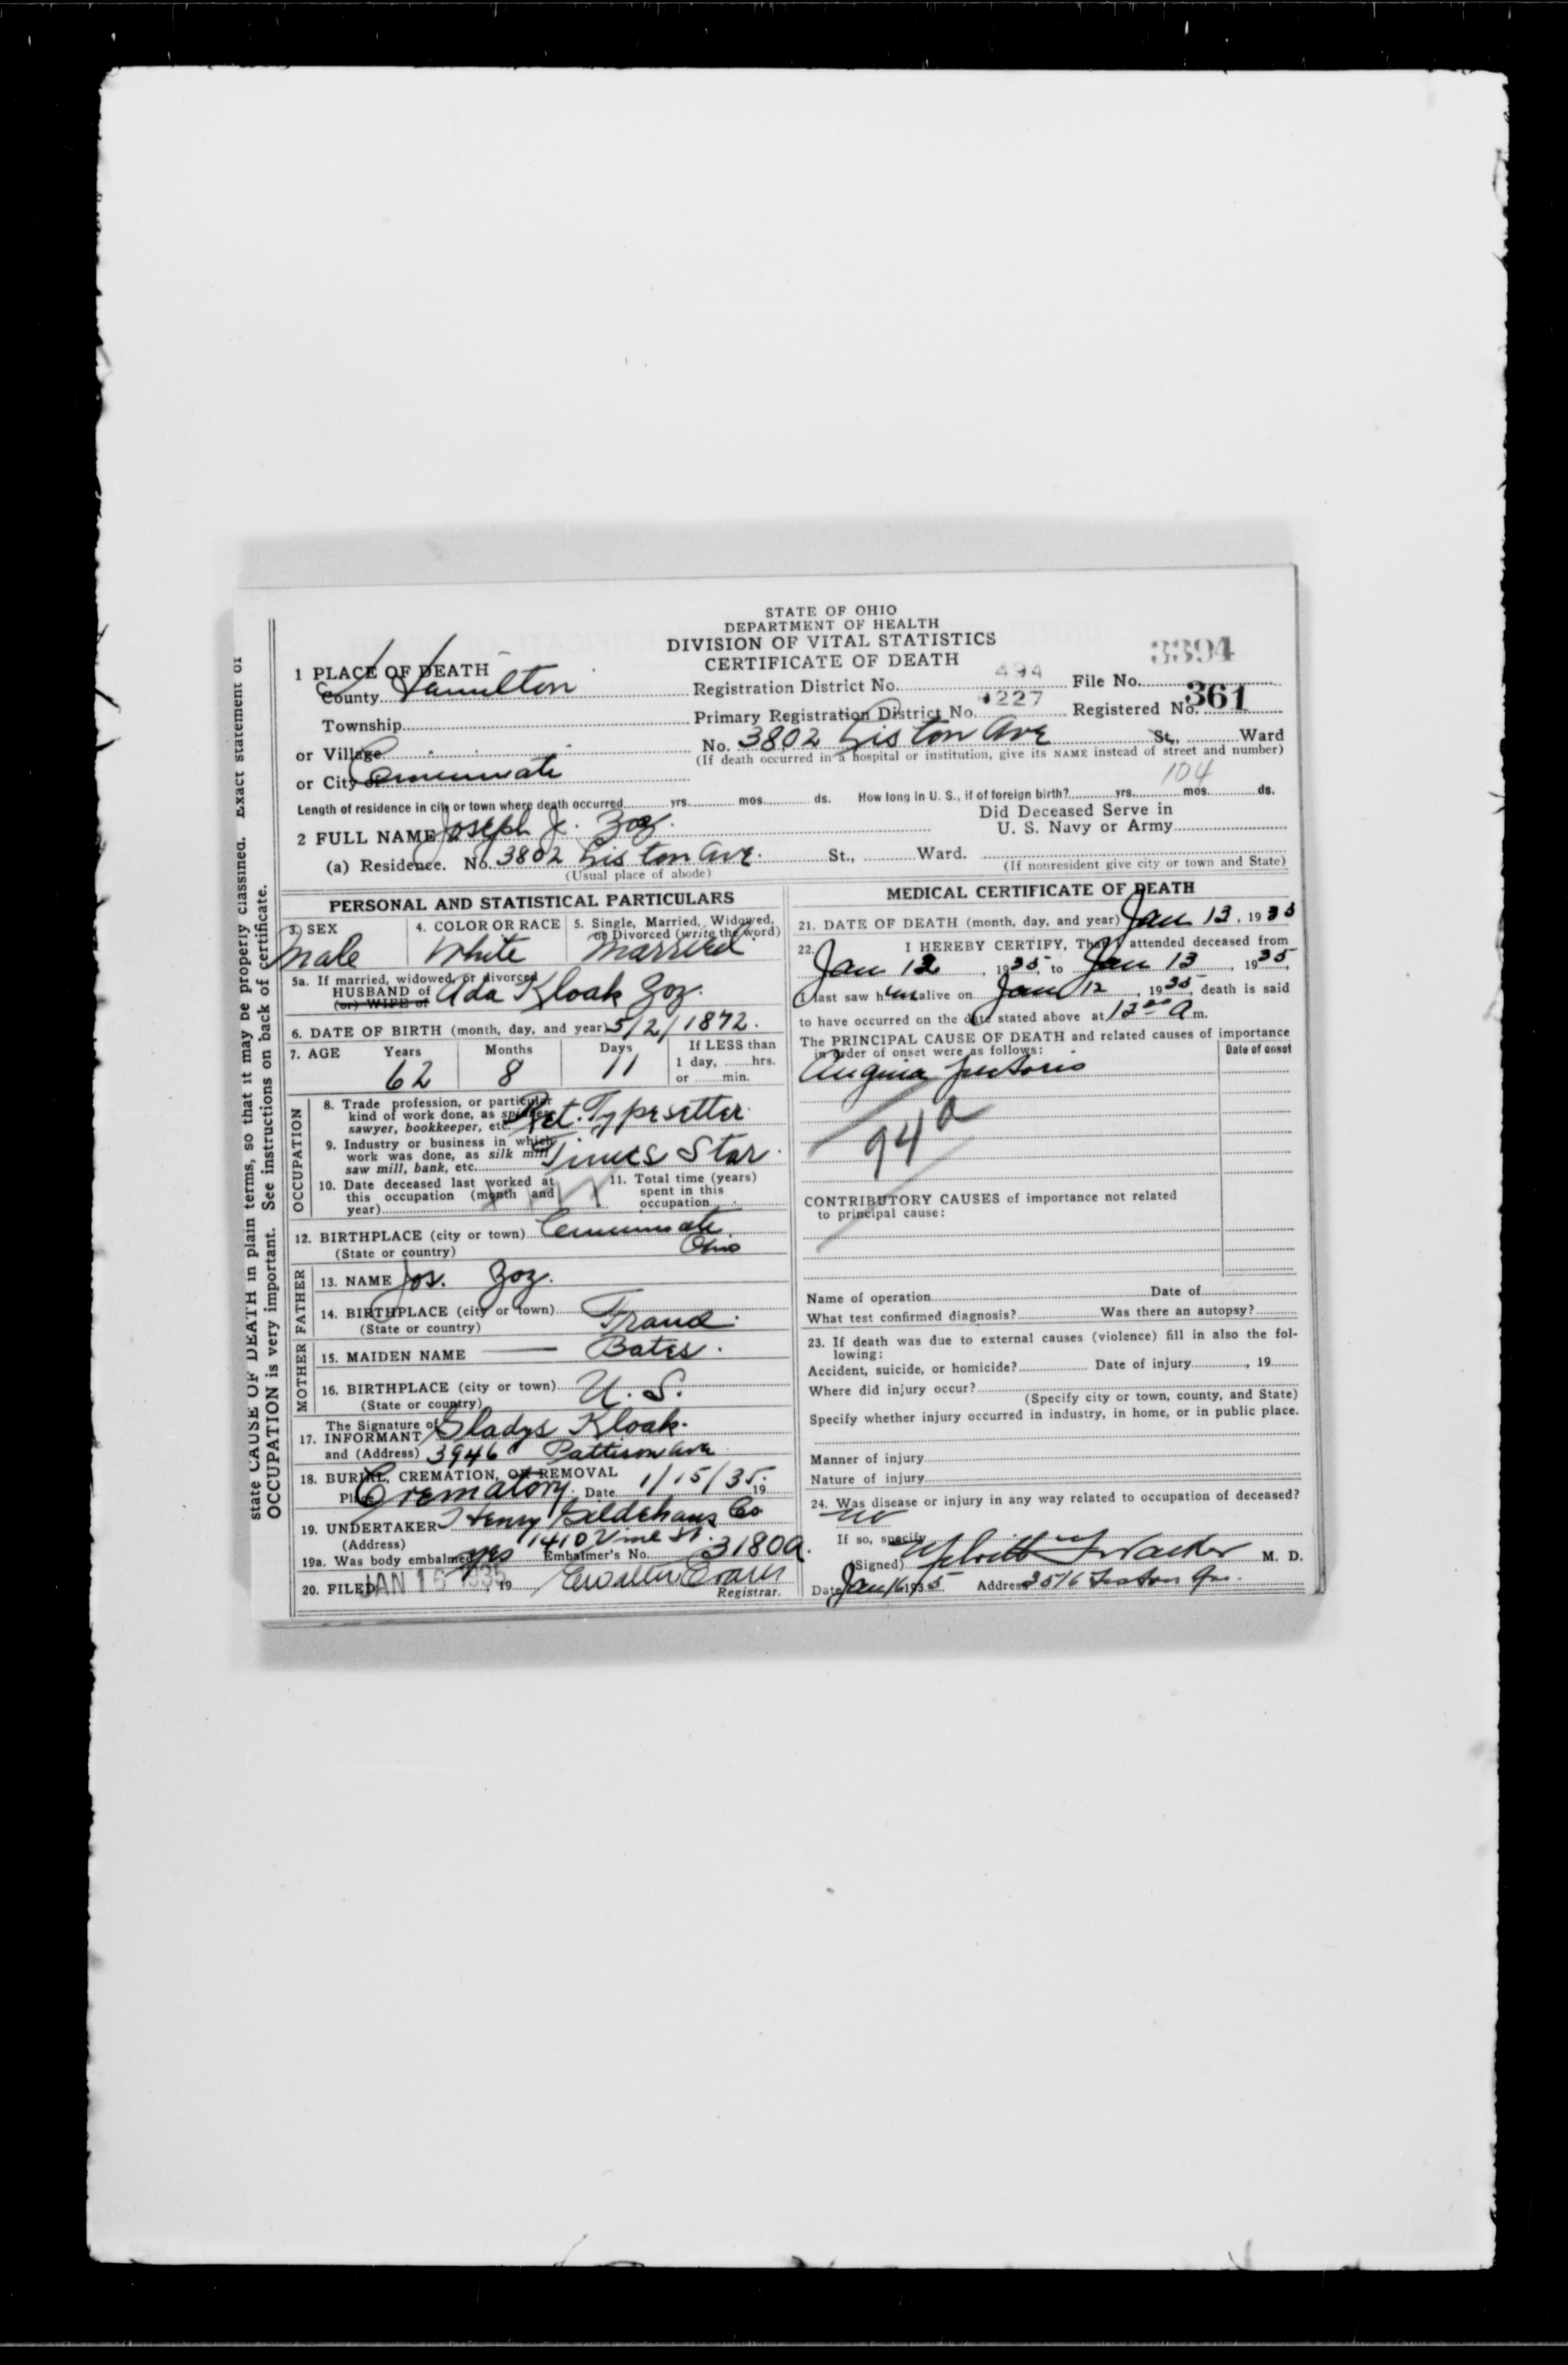 state CAUSE OF DEATH in plain terms, so that it may be properly classified. Exact statement of
OCCUPATION is very important. See instructions on back of certificate.
STATE OF OHIO
DEPARTMENT OF HEALTH
DIVISION OF VITAL STATISTICS
CERTIFICATE OF DEATH
3394
1 PLACE OF DEATH
County Hamilton
Registration District No. 494 File No.
Township
Primary Registration District No. 227 Registered No. 361
or Village
No. 3802 Liston Ave St., Ward
(If death occurred in a hospital or institution, give its NAME instead of street and number)
or City of Cincinnati
104
Length of residence in city or town where death occurred yrs. mos. ds. How long in U. S., if of foreign birth? yrs. mos. ds.
Did Deceased Serve in
U. S. Navy or Army
2 FULL NAME Joseph J. Zoz.
(a) Residence. No. 3802 Liston Ave. St., Ward.
(Usual place of abode) (If nonresident give city or town and State)
PERSONAL AND STATISTICAL PARTICULARS
3. SEX
Male
4. COLOR OR RACE
White
5. Single, Married, Widowed,
or Divorced (write the word)
Married.
5a. If married, widowed, or divorced
HUSBAND of Ada Kloak Zoz.
(or) WIFE of
6. DATE OF BIRTH (month, day, and year) 5/2/1872.
7. AGE Years Months Days If LESS than
1 day, hrs.
or min.
62 8 11
OCCUPATION
8. Trade profession, or particular
kind of work done, as spinner,
sawyer, bookkeeper, etc. Ret. Typesetter.
9. Industry or business in which
work was done, as silk mill,
saw mill, bank, etc. Times Star.
10. Date deceased last worked at
this occupation (month and
year)
11. Total time (years)
spent in this
occupation
12. BIRTHPLACE (city or town) Cincinnati
(State or country) Ohio
FATHER
13. NAME Jos. Zoz.
14. BIRTHPLACE (city or town)
(State or country)
MOTHER
15. MAIDEN NAME — Bates.
16. BIRTHPLACE (city or town) U. S.
(State or country)
The Signature of
17. INFORMANT Gladys Kloak.
and (Address) 3946 Pattison Ave
18. BURIAL, CREMATION, OR REMOVAL
Place Crematory. Date 1/15/35. 19
19. UNDERTAKER Henry Gildehaus Co
(Address) 1410 Vine St.
19a. Was body embalmed yes Embalmer's No. 3180a.
20. FILED JAN 16 1935, 19
Registrar.
MEDICAL CERTIFICATE OF DEATH
21. DATE OF DEATH (month, day, and year) Jan 13, 1935
22. I HEREBY CERTIFY, That I attended deceased from
Jan 12, 1935, to Jan 13, 1935,
I last saw him alive on Jan 12, 1935, death is said
to have occurred on the date stated above at 12 00 A m.
The PRINCIPAL CAUSE OF DEATH and related causes of importance
in order of onset were as follows:
Date of onset
Angina Pectoris
94a
CONTRIBUTORY CAUSES of importance not related
to principal cause:
Name of operation Date of
What test confirmed diagnosis? Was there an autopsy?
23. If death was due to external causes (violence) fill in also the fol-
lowing:
Accident, suicide, or homicide? Date of injury, 19
Where did injury occur?
(Specify city or town, county, and State)
Specify whether injury occurred in industry, in home, or in public place.
Manner of injury
Nature of injury
24. Was disease or injury in any way related to occupation of deceased?
no
If so, specify
(Signed) M. D.
Date Jan 16 1935 Address 3516